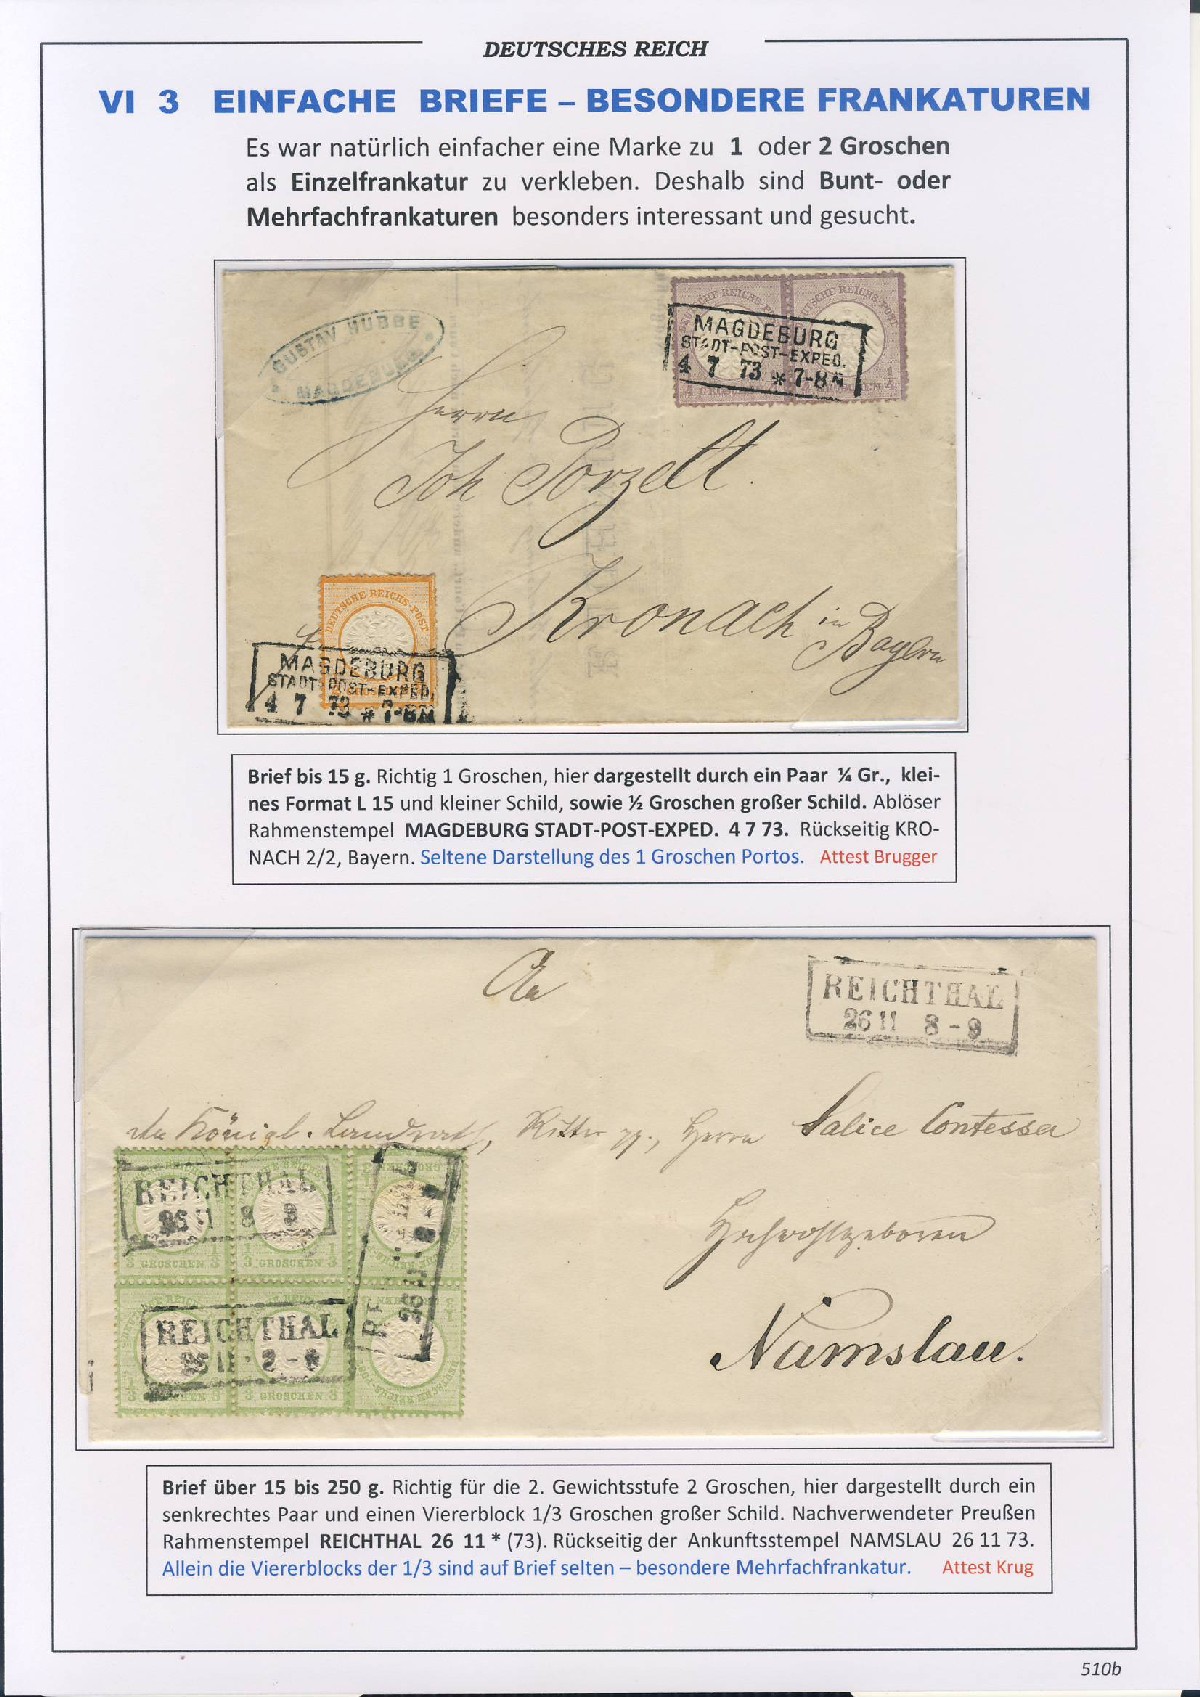 DEUTSCHES REICH
VI 3 EINFACHE BRIEFE – BESONDERE FRANKATUREN
Es war natürlich einfacher eine Marke zu 1 oder 2 Groschen
als Einzelfrankatur zu verkleben. Deshalb sind Bunt- oder
Mehrfachfrankaturen besonders interessant und gesucht.
GUSTAV HUBBE
MAGDEBURG
MAGDEBURG
STADT-POST-EXPED.
4 7 73 * 7-8 N
Herrn
Joh Porzelt.
Kronach in
Bayern
DEUTSCHE REICHS-POST
MAGDEBURG
STADT-POST-EXPED.
4 7 73 * 7-8 N
Brief bis 15 g. Richtig 1 Groschen, hier dargestellt durch ein Paar ¼ Gr., klei-
nes Format L 15 und kleiner Schild, sowie ½ Groschen großer Schild. Ablöser
Rahmenstempel MAGDEBURG STADT-POST-EXPED. 4 7 73. Rückseitig KRO-
NACH 2/2, Bayern. Seltene Darstellung des 1 Groschen Portos. Attest Brugger
An
REICHTHAL
26 11 8 - 9
Königl. Landrath, Ritter pp., Herrn Salice Contessa
Hochwohlgeboren
Namslau.
REICHTHAL
26 11 8 9
1/3 GROSCHEN 1/3
1/3 GROSCHEN 1/3
REICHTHAL
26 11
1/3 GROSCHEN 1/3
1/3 GROSCHEN 1/3
Brief über 15 bis 250 g. Richtig für die 2. Gewichtsstufe 2 Groschen, hier dargestellt durch ein
senkrechtes Paar und einen Viererblock 1/3 Groschen großer Schild. Nachverwendeter Preußen
Rahmenstempel REICHTHAL 26 11 * (73). Rückseitig der Ankunftsstempel NAMSLAU 26 11 73.
Allein die Viererblocks der 1/3 sind auf Brief selten – besondere Mehrfachfrankatur. Attest Krug
510b